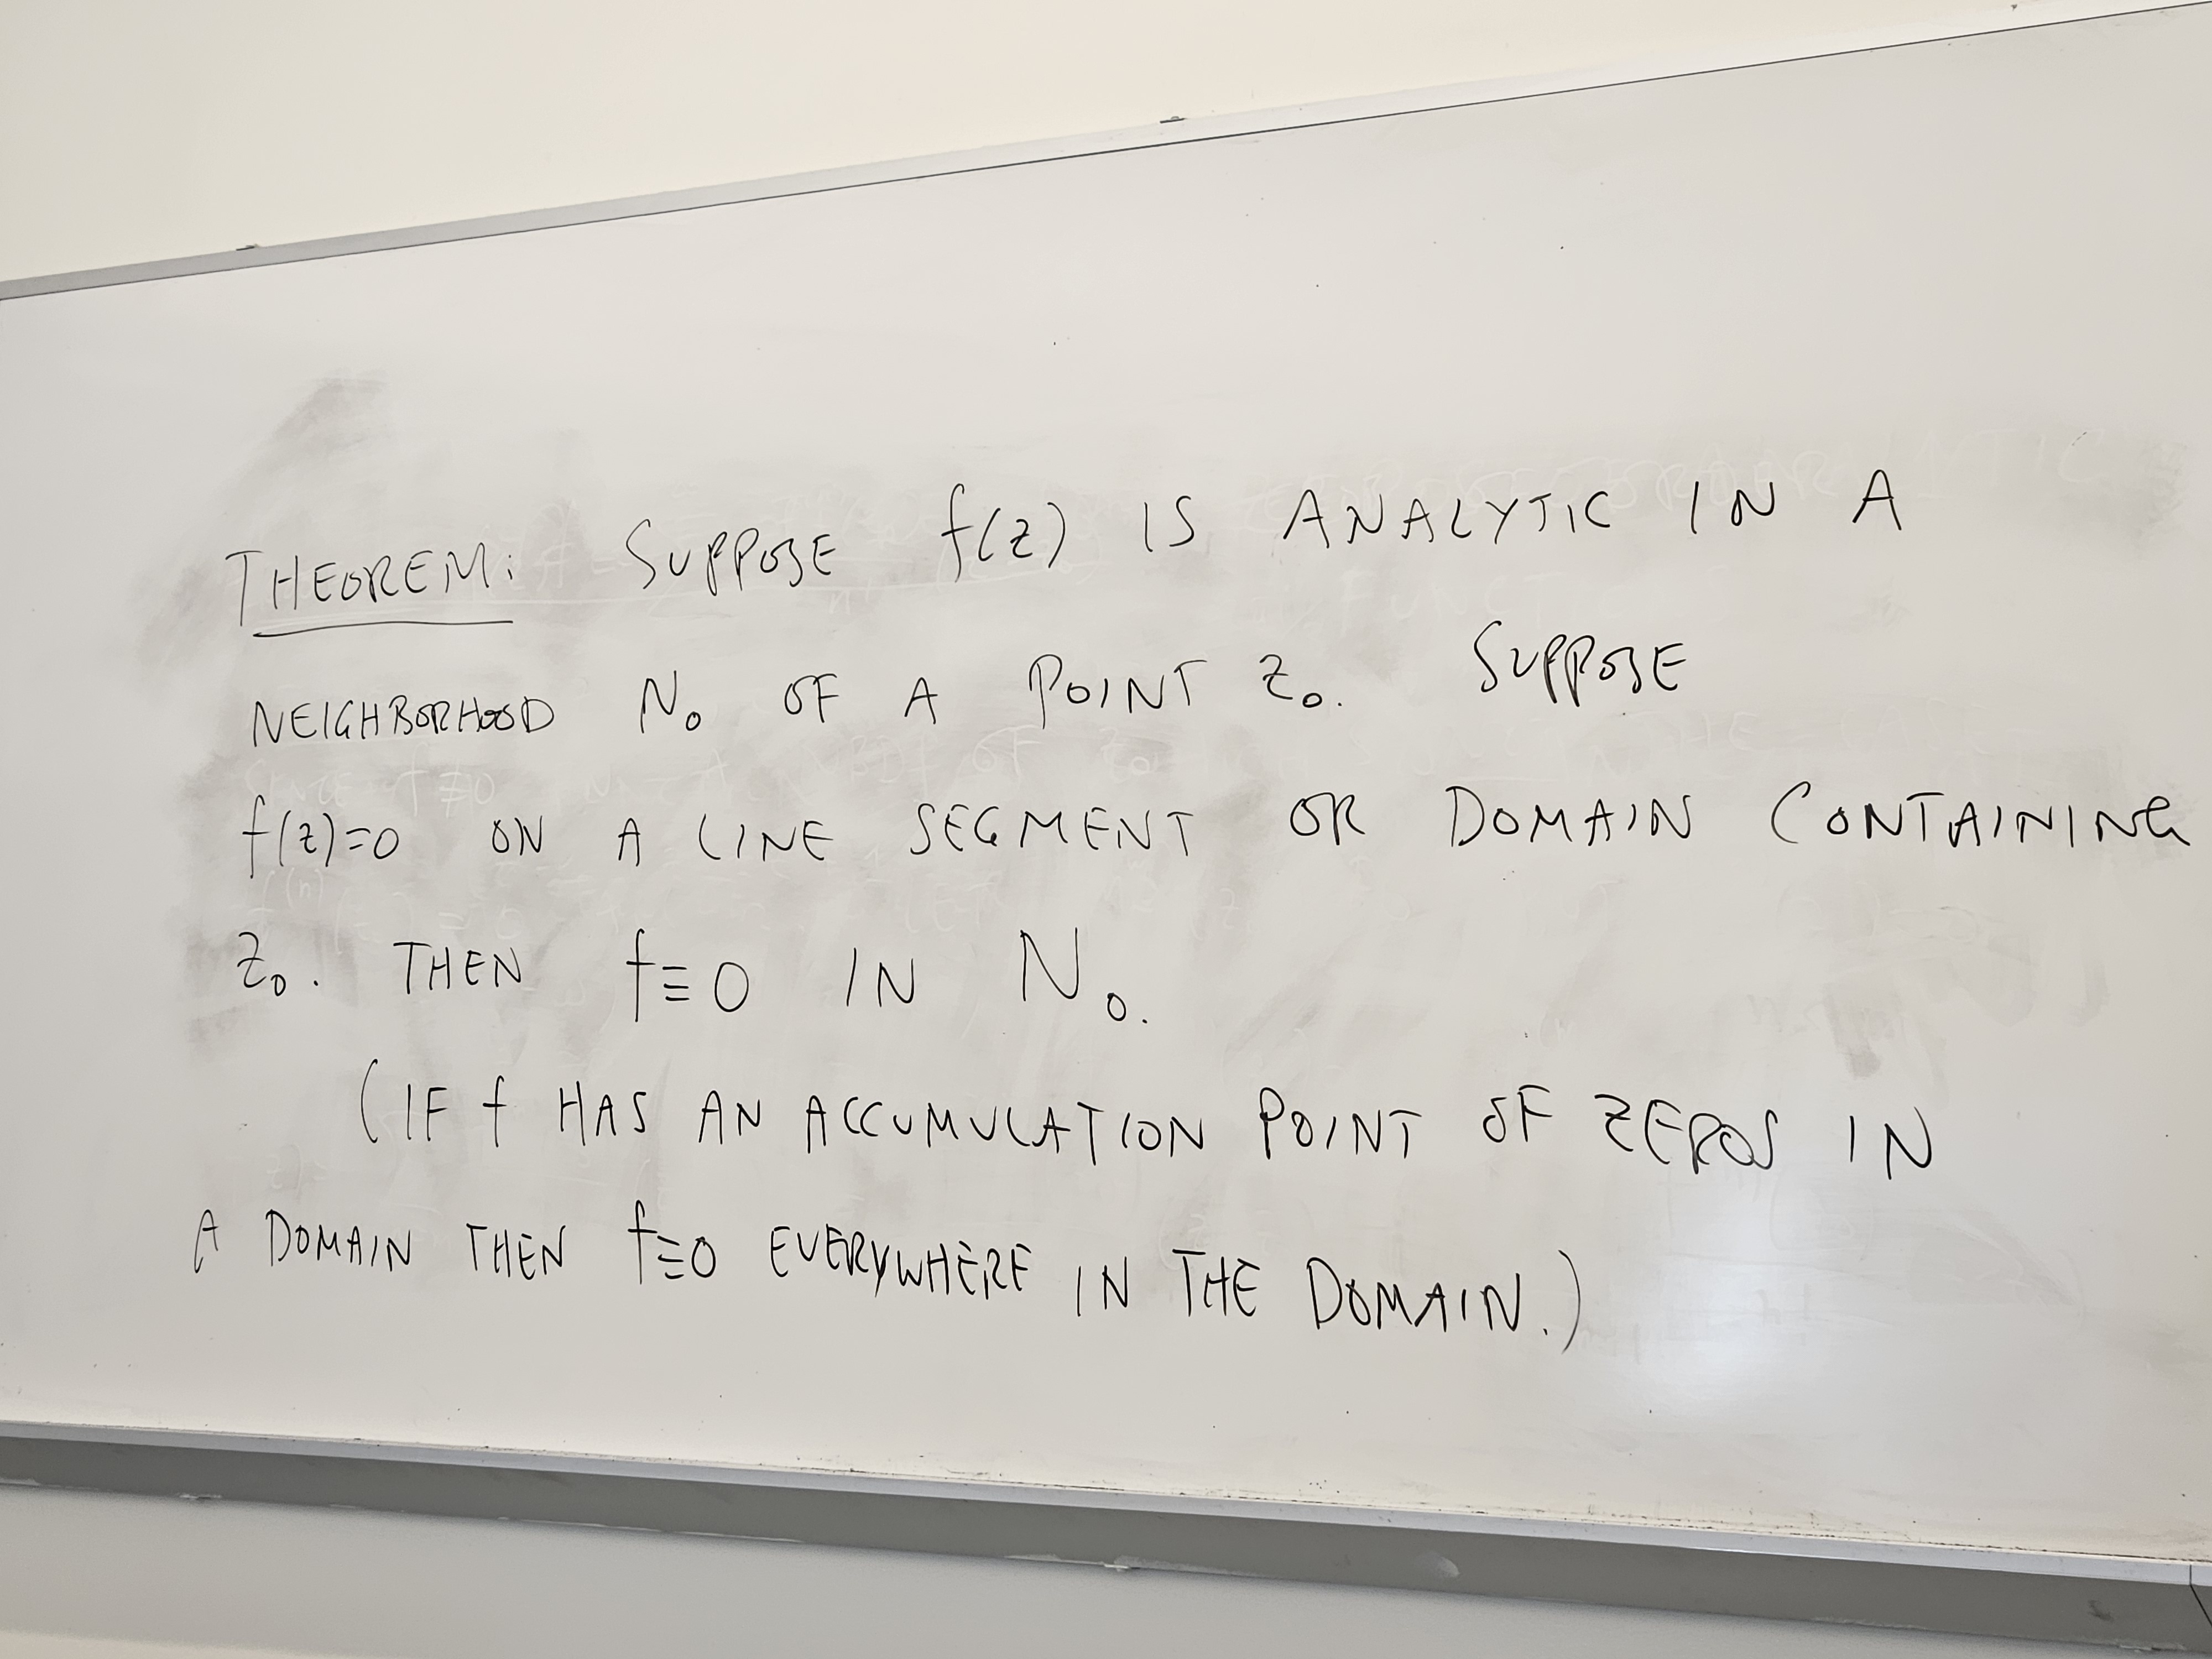 THEOREM: SUPPOSE f(z) IS ANALYTIC IN A
NEIGHBORHOOD N₀ OF A POINT z₀. SUPPOSE
f(z)=0 ON A LINE SEGMENT OR DOMAIN CONTAINING
z₀. THEN f≡0 IN N₀.
(IF f HAS AN ACCUMULATION POINT OF ZEROS IN
A DOMAIN THEN f≡0 EVERYWHERE IN THE DOMAIN.)